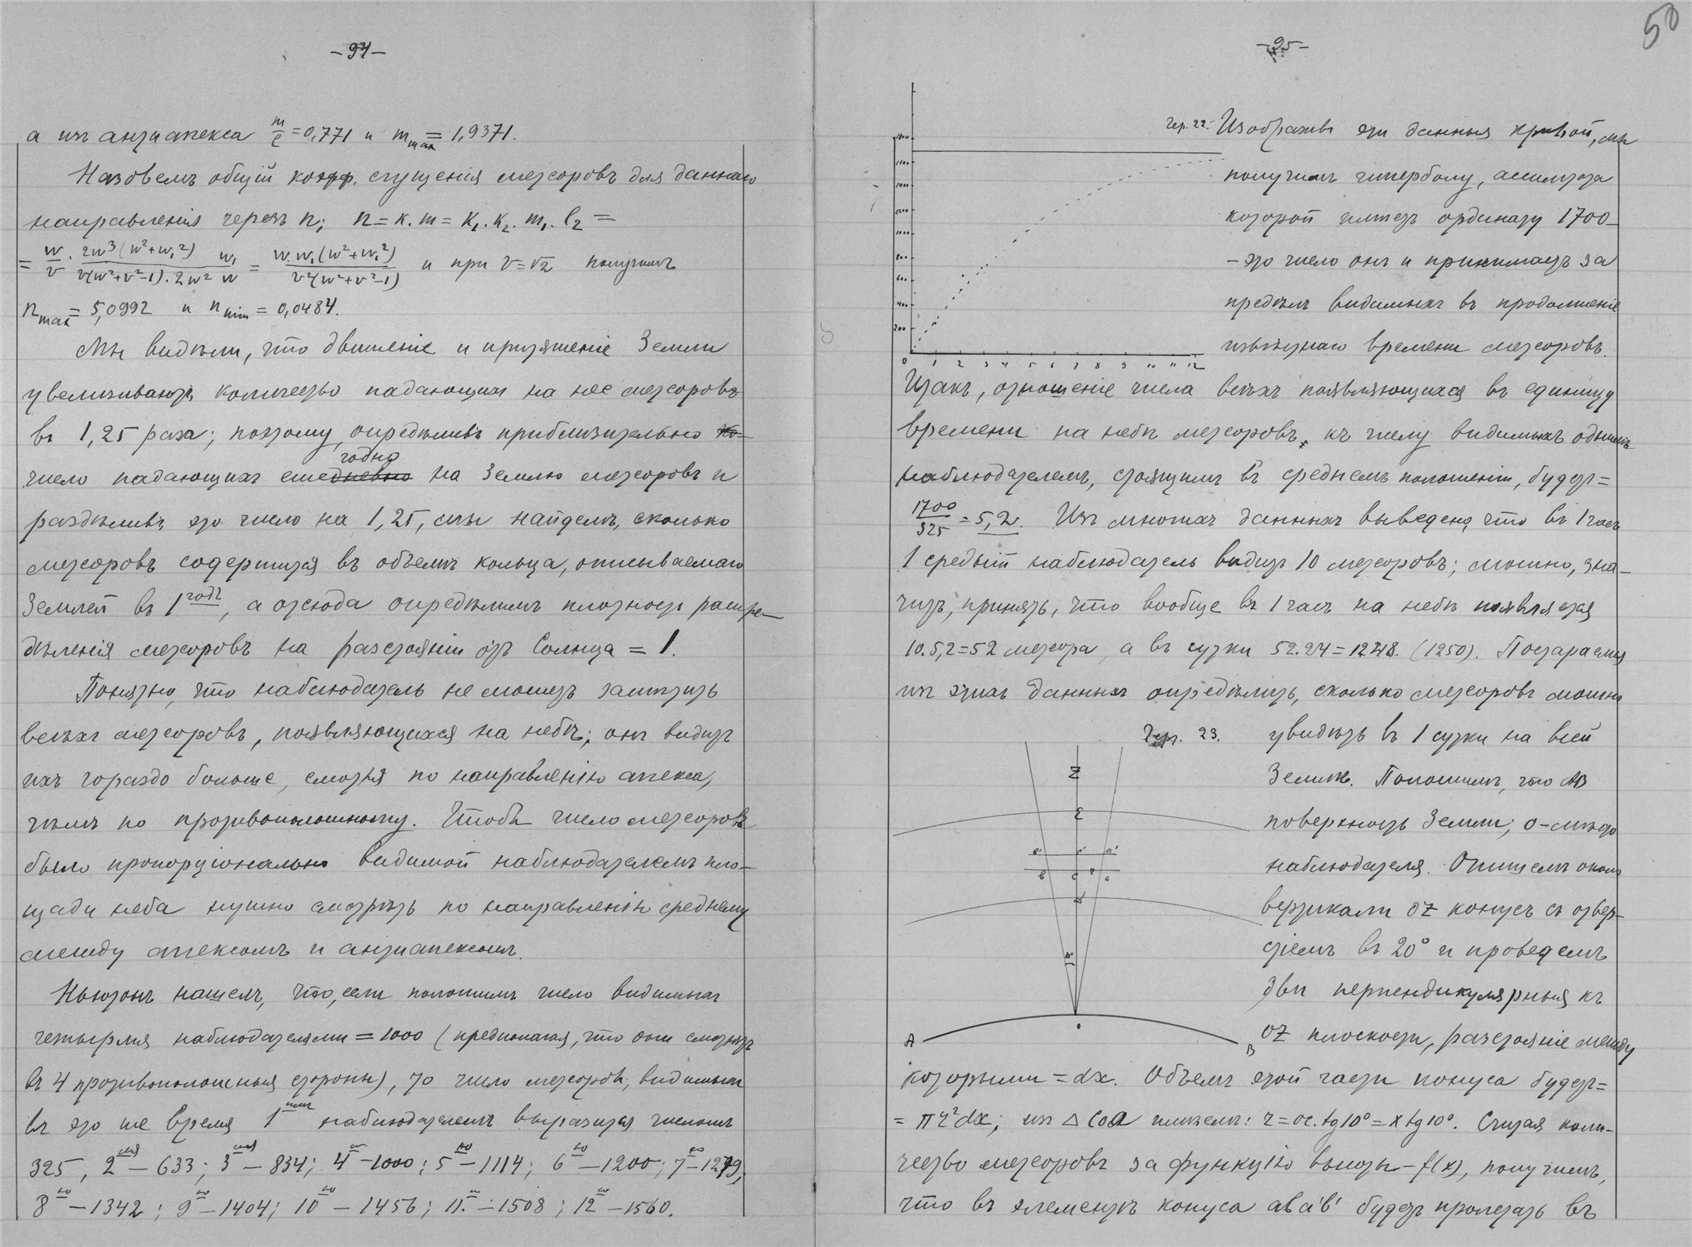 -94-
а изъ антиапекса m/c = 0,771 и m max = 1,9371.
Назовемъ общій коэфф. сгущенія метеоровъ для даннаго
направленія черезъ n; n = k.m = k₁.k₂.m₁.l₂ =
= w/v . 2w³(w²+w₁²)/v(w²+v²-1).2w² w₁/w = w.w₁(w²+w₁²)/v²(w²+v²-1) и при v=√2 получимъ
n max = 5,0992 и n min = 0,0484.
Мы видѣли, что движеніе и притяженіе Земли
увеличиваютъ количество падающихъ на нее метеоровъ
въ 1,25 раза; поэтому, опредѣливъ приблизительно
число падающихъ ежегодно на Землю метеоровъ и
раздѣливъ это число на 1,25, мы найдемъ, сколько
метеоровъ содержится въ объемѣ кольца, описываемаго
Землей въ 1 годъ, а отсюда опредѣлимъ плотность распре-
дѣленія метеоровъ на разстояніи отъ Солнца = 1.
Понятно, что наблюдатель не можетъ замѣтить
всѣхъ метеоровъ, появляющихся на небѣ; онъ видитъ
ихъ гораздо больше, смотря по направленію апекса,
чѣмъ по противоположному. Чтобы число метеоровъ
было пропорціонально видимой наблюдателемъ пло-
щади неба нужно смотрѣть по направленію среднему
между апексомъ и антиапексомъ.
Ньютонъ нашелъ, что, если положимъ число видимыхъ
четырьмя наблюдателями = 1000 (предполагая, что они смотрятъ
въ 4 противоположныя стороны), то число метеоровъ, видимыхъ
въ это же время 1 наблюдателемъ выразится числомъ
325, 2мя – 633; 3мя – 834; 4 – 1000; 5ю – 1114; 6ю – 1200; 7ю – 1279,
8ю – 1342; 9ю – 1404; 10ю – 1456; 11 – 1508; 12ю – 1560.
50
-95-
Чер. 22. Изобразивъ эти данныя кривой, мы
получимъ гиперболу, ассимптота
которой имѣетъ ординату 1700 –
– это число онъ и принимаетъ за
предѣлъ видимыхъ въ продолженіе
извѣстнаго времени метеоровъ.
0 1 2 3 4 5 6 7 8 9 10 11 12
Итакъ, отношеніе числа всѣхъ появляющихся въ единицу
времени на небѣ метеоровъ, къ числу видимыхъ однимъ
наблюдателемъ, стоящимъ въ среднемъ положеніи, будетъ =
1700/325 = 5,2. Изъ многихъ данныхъ выведено, что въ 1 часъ
1 средній наблюдатель видитъ 10 метеоровъ; можно, зна-
читъ, принять, что вообще въ 1 часъ на небѣ появляется
10.5,2=52 метеора, а въ сутки 52.24=1248. (1250). Постараемся
изъ этихъ данныхъ опредѣлить, сколько метеоровъ можно
Чер. 23. увидѣть въ 1 сутки на всей
Землѣ. Положимъ, что AB
поверхность Земли; O – мѣсто
наблюдателя. Опишемъ около
вертикали OZ конусъ съ отвер-
стіемъ въ 20° и проведемъ
двѣ перпендикулярныя къ
OZ плоскости, разстояніе между
Z
A
B
которыми = dx. Объемъ этой части конуса будетъ =
= πr²dx; изъ △ coa имѣемъ: r = oc.tg10° = x tg10°. Считая коли-
чество метеоровъ за функцію высоты – f(x), получимъ,
что въ элементѣ конуса aba'b' будетъ пролетать въ